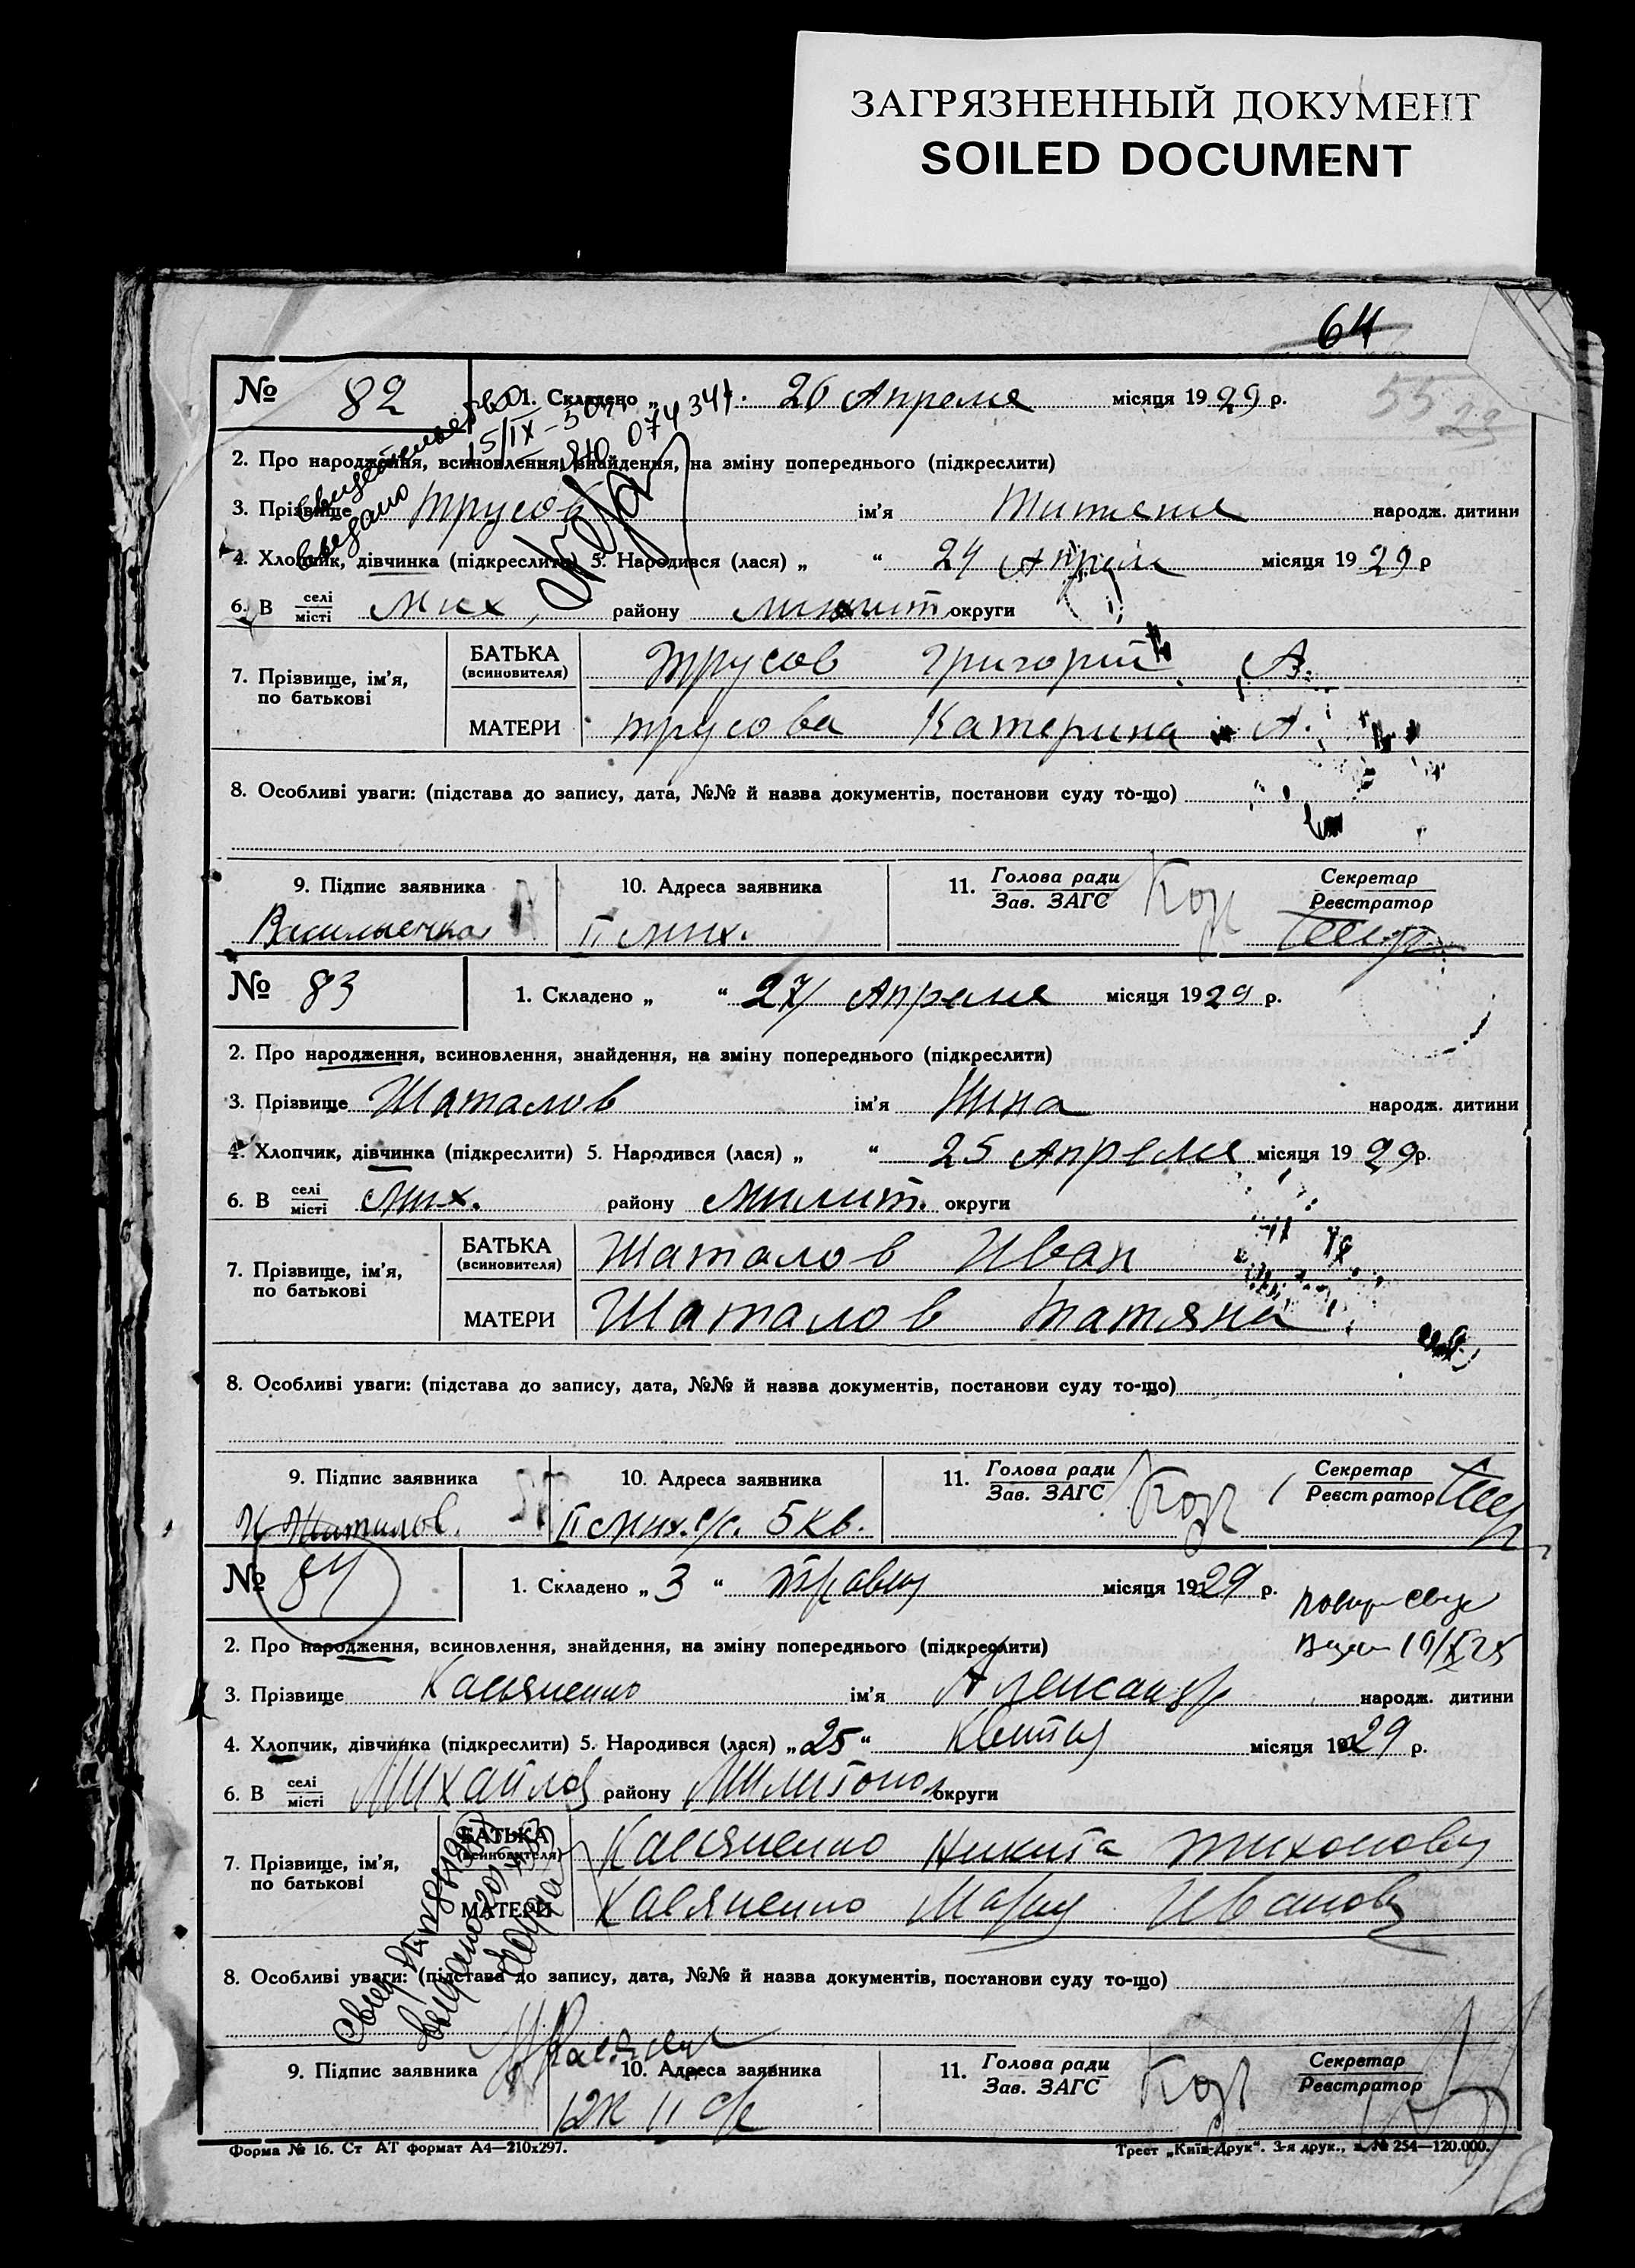 ЗАГРЯЗНЕННЫЙ ДОКУМЕНТ
SOILED DOCUMENT
64
55
23
№ 82
1. Складено „ 26 Апреля місяця 1929 р.
Свидетельство
выдано
15/IX-50г.
074341
2. Про народження, всиновлення, знайдення, на зміну попереднього (підкреслити)
3. Прізвище Трусов ім'я народж. дитини
4. Хлопчик, дівчинка (підкреслити) 5. Народився (лася) „ “ 24 Апреля місяця 1929 р
6. В селі/місті Мих, району Мелит округи
7. Прізвище, ім'я, по батькові
БАТЬКА (всиновителя) Трусов Григорий А.
МАТЕРИ Трусова Катерина А.
8. Особливі уваги: (підстава до запису, дата, №№ й назва документів, постанови суду то-що)
9. Підпис заявника 10. Адреса заявника 11. Голова ради/Зав. ЗАГС Секретар/Реєстратор
II Мих.
№ 83
1. Складено „ “ 27 Апреля місяця 1929 р.
2. Про народження, всиновлення, знайдення, на зміну попереднього (підкреслити)
3. Прізвище Шаталов ім'я народж. дитини
4. Хлопчик, дівчинка (підкреслити) 5. Народився (лася) „ “ 25 Апреля місяця 1929 р.
6. В селі/місті Мих. району Мелит. округи
7. Прізвище, ім'я, по батькові
БАТЬКА (всиновителя) Шаталов Иван
МАТЕРИ Шаталов Татяна
8. Особливі уваги: (підстава до запису, дата, №№ й назва документів, постанови суду то-що)
9. Підпис заявника 10. Адреса заявника 11. Голова ради/Зав. ЗАГС Секретар/Реєстратор
И Шаталов. II Мих. с/с. 5 кв.
№ 84
1. Складено „ 3 “ травня місяця 1929 р.
2. Про народження, всиновлення, знайдення, на зміну попереднього (підкреслити)
3. Прізвище Касьяненко ім'я Александр народж. дитини
4. Хлопчик, дівчинка (підкреслити) 5. Народився (лася) „ 25 “ Квітня місяця 1929 р.
6. В селі/місті Михайлов району Мелитопол округи
7. Прізвище, ім'я, по батькові
БАТЬКА (всиновителя) Касяненко Никита Тихонович
МАТЕРИ Касяненко Мария Иванов
8. Особливі уваги: (підстава до запису, дата, №№ й назва документів, постанови суду то-що)
9. Підпис заявника 10. Адреса заявника 11. Голова ради/Зав. ЗАГС Секретар/Реєстратор
12к II с/с
Форма № 16. Ст АТ формат А4—210х297.
Трест „Київ-Друк“. 3-я друк., з. № 254—120.000.